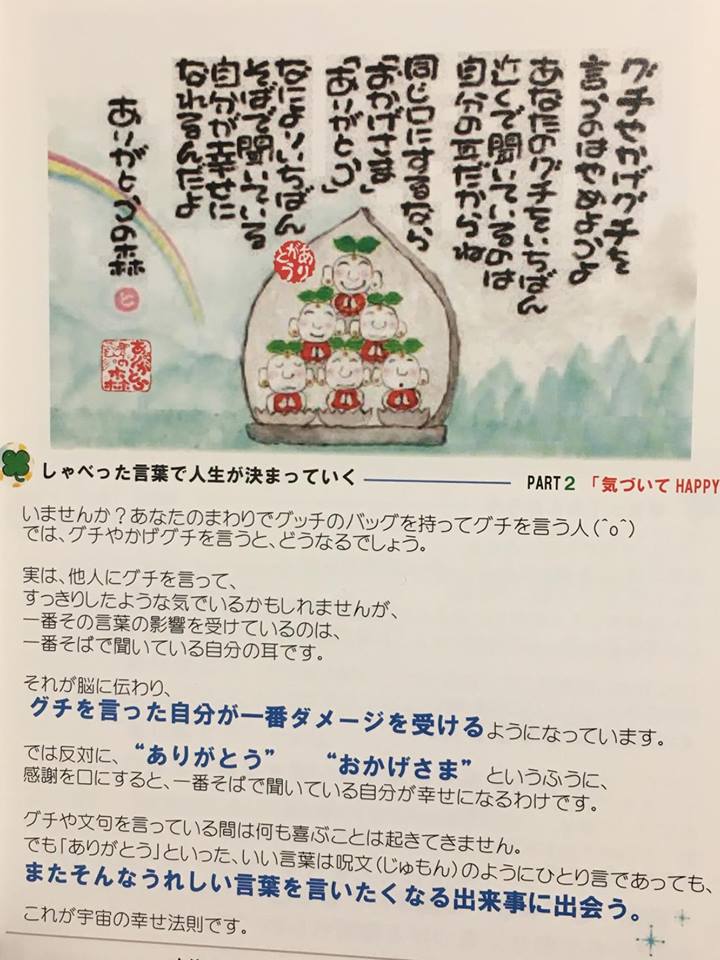 グチやかげグチを
言うのはやめようよ
あなたのグチをいちばん
近くで聞いているのは
自分の耳だからね
同じ口にするなら
「おかげさま」
「ありがとう」
なによりいちばん
そばで聞いている
自分が幸せに
なれるんだよ
ありがとうの森
ありがとう
しゃべった言葉で人生が決まっていく
PART2 「気づいて HAPPY
いませんか？あなたのまわりでグッチのバッグを持ってグチを言う人(^o^)
では、グチやかげグチを言うと、どうなるでしょう。
実は、他人にグチを言って、
すっきりしたような気でいるかもしれませんが、
一番その言葉の影響を受けているのは、
一番そばで聞いている自分の耳です。
それが脳に伝わり、
グチを言った自分が一番ダメージを受けるようになっています。
では反対に、“ありがとう” “おかげさま” というふうに、
感謝を口にすると、一番そばで聞いている自分が幸せになるわけです。
グチや文句を言っている間は何も喜ぶことは起きてきません。
でも「ありがとう」といった、いい言葉は呪文(じゅもん)のようにひとり言であっても、
またそんなうれしい言葉を言いたくなる出来事に出会う。
これが宇宙の幸せ法則です。